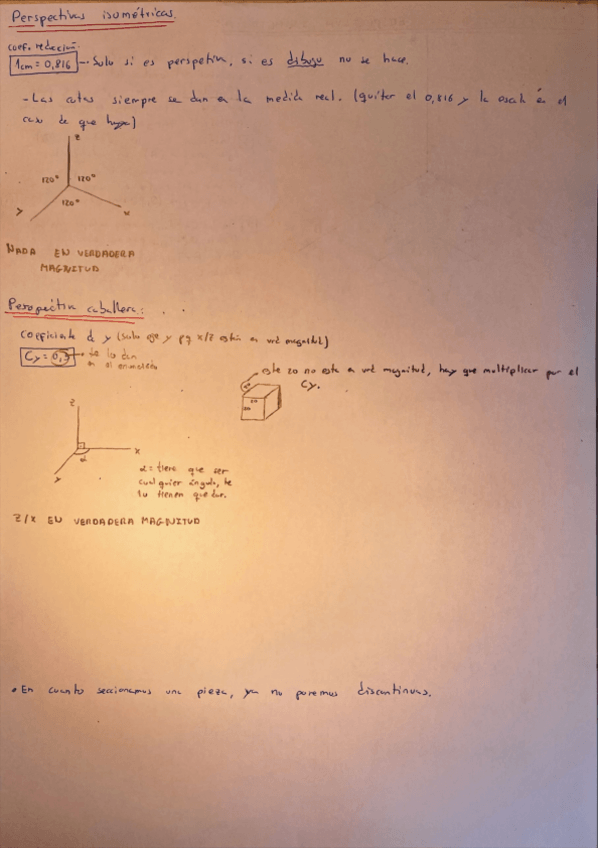 Perspectivas isométricas.
coef. reducción:
1cm = 0,816 → Solo si es perspetiva, si es dibujo no se hace.
- Las cotas siempre se dan en la medida real. (quitar el 0,816 y la escala en el
caso de que haya)
z
120° 120°
120°
y x
NADA EN VERDADERA
MAGNITUD
Perspectiva caballera:
Coeficiente d y (solo eje y pq x/z están en vrd magnitud)
Cy = 0,7 → te lo dan
en el enunciado
este 20 no esta en vrd magnitud, hay que multiplicar por el
Cy.
z
x
α
y
α = tiene que ser
cualquier ángulo, te
lo tienen que dar.
Z/X EN VERDADERA MAGNITUD
• En cuanto seccionamos una pieza, ya no ponemos discontinuas.